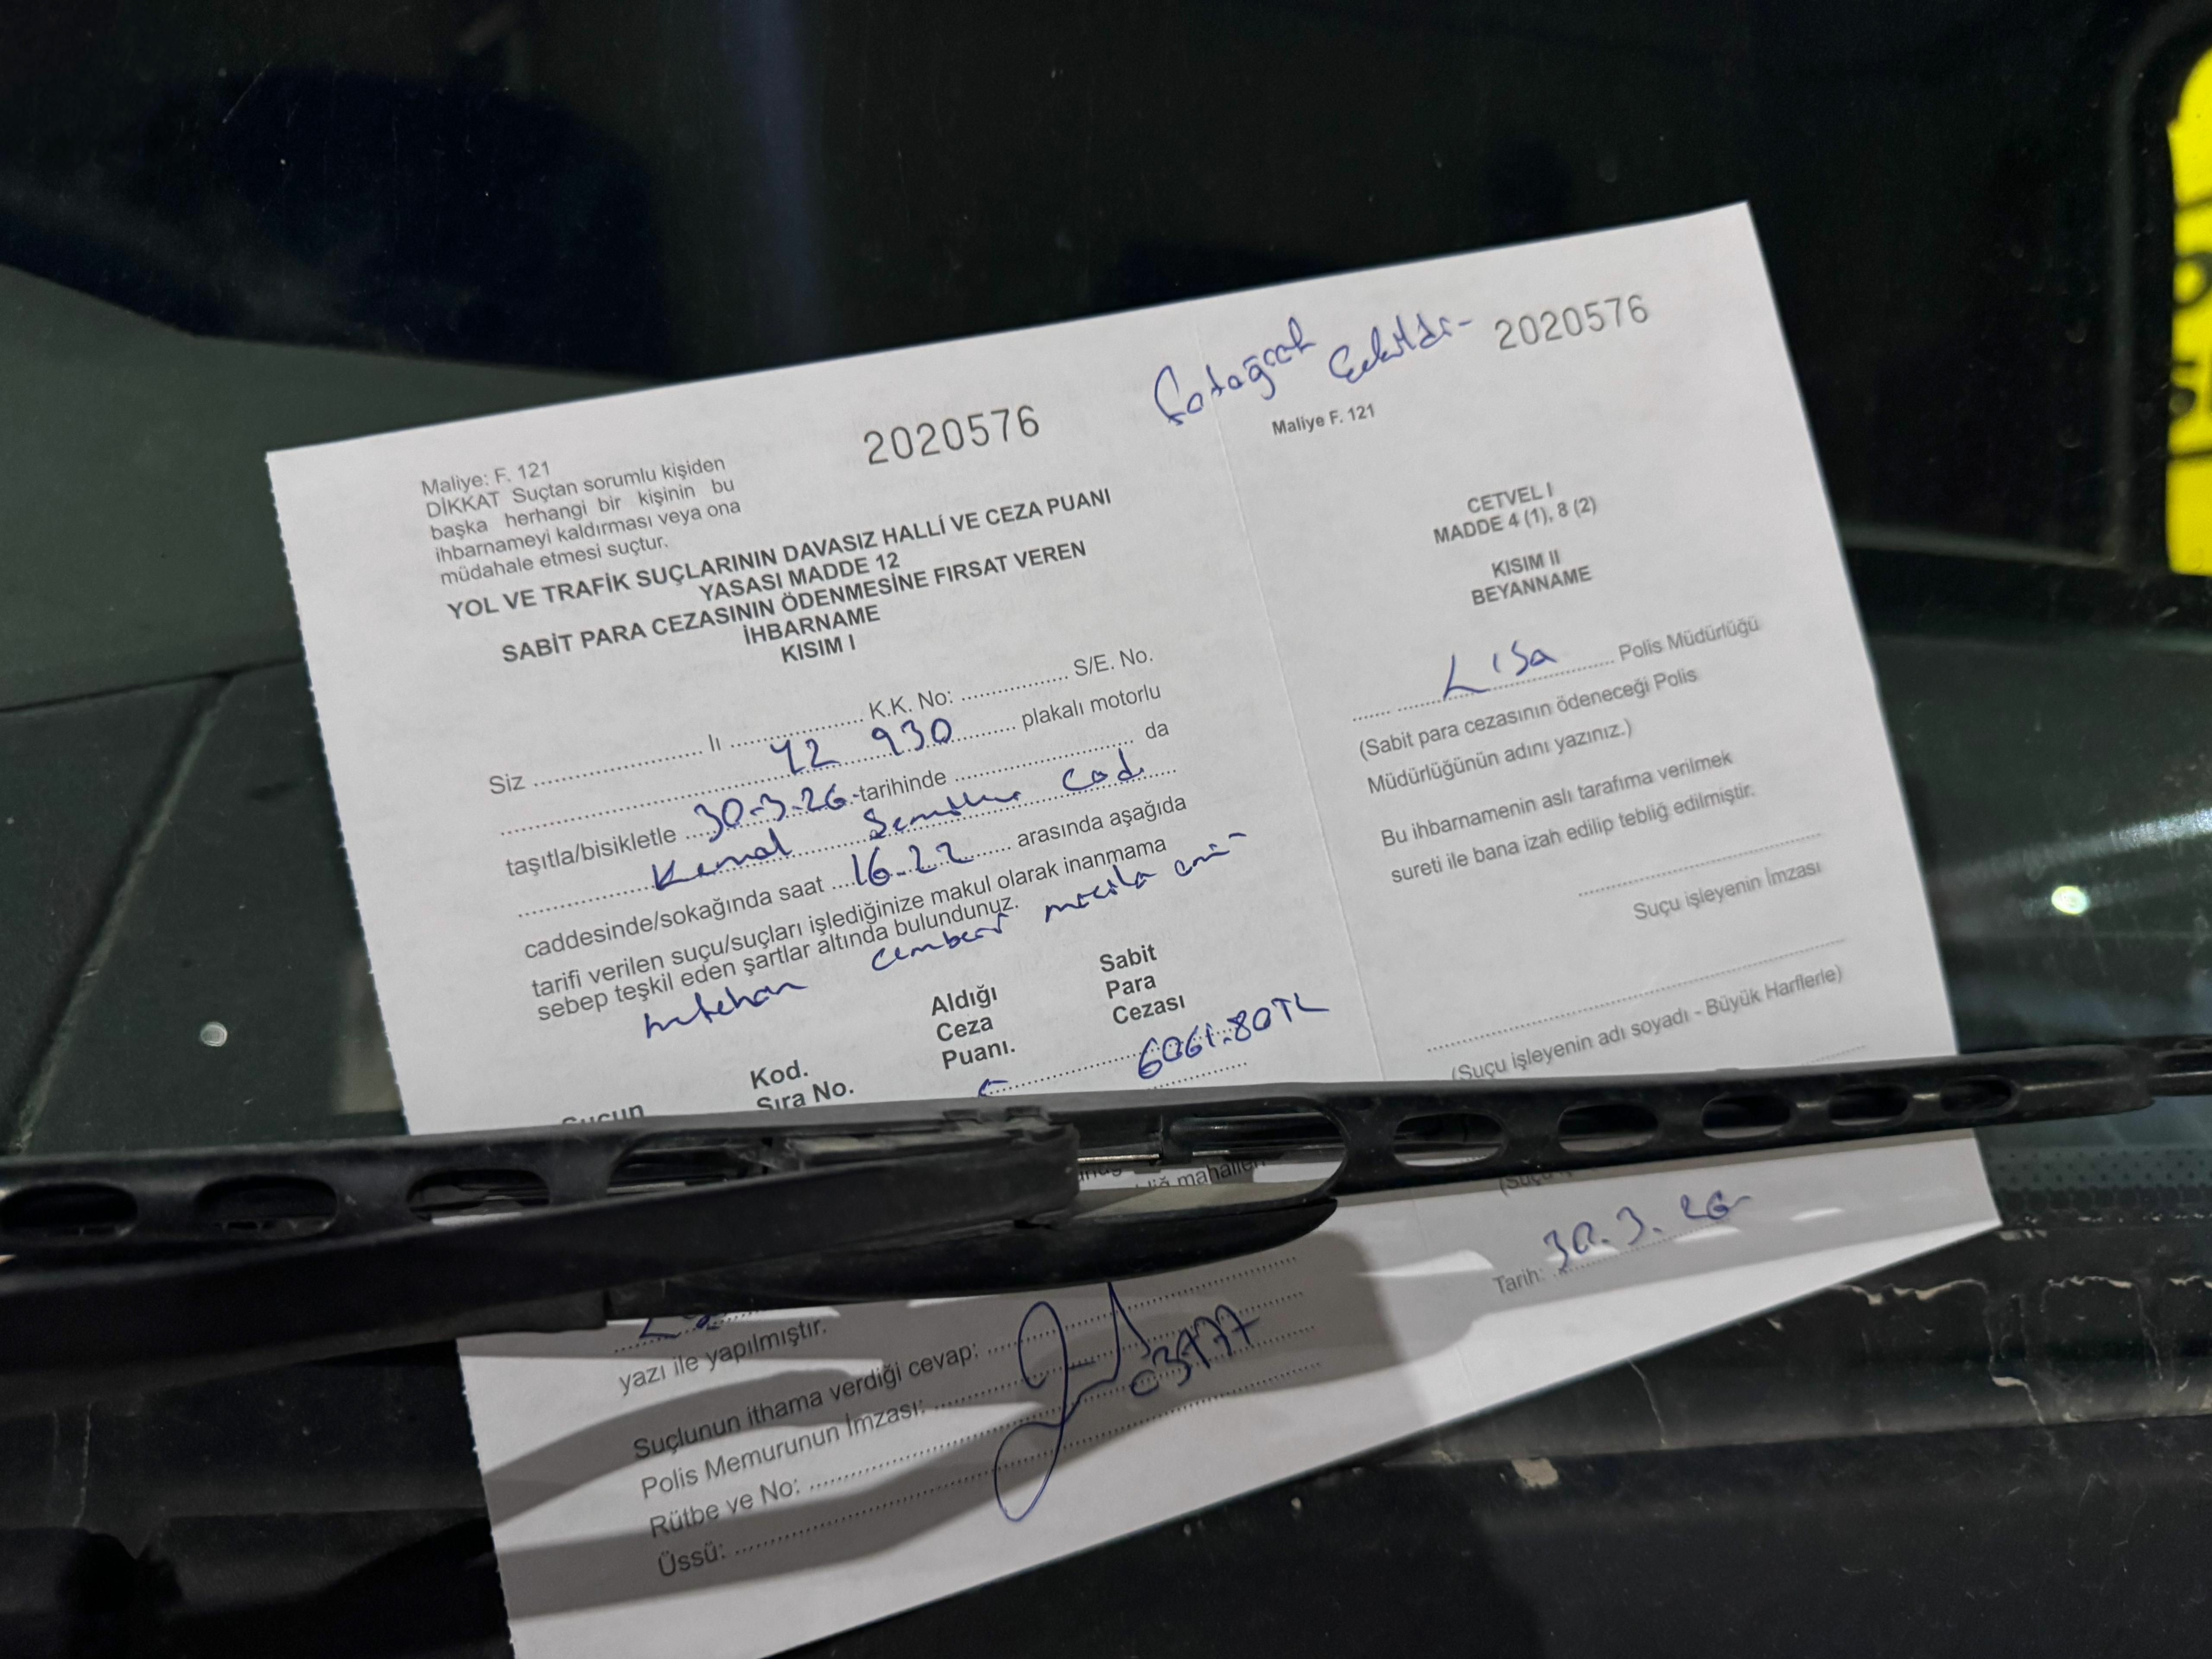 2020576
Fotoğraf Çekildi-
2020576
Maliye: F. 121
DİKKAT Suçtan sorumlu kişiden
başka herhangi bir kişinin bu
ihbarnameyi kaldırması veya ona
müdahale etmesi suçtur.
YOL VE TRAFİK SUÇLARININ DAVASIZ HALLİ VE CEZA PUANI
YASASI MADDE 12
SABİT PARA CEZASININ ÖDENMESİNE FIRSAT VEREN
İHBARNAME
KISIM I
Siz .................... lı .................... K.K. No: .................... S/E. No.
930 plakalı motorlu
taşıtla/bisikletle 30-3-26 tarihinde .................... da
Kemal Cad.
caddesinde/sokağında saat 16.22 arasında aşağıda
tarifi verilen suçu/suçları işlediğinize makul olarak inanmama
sebep teşkil eden şartlar altında bulundunuz.
Çemberi
Kod.
Sıra No.
Aldığı
Ceza
Puanı.
Sabit
Para
Cezası
6061.80TL
yazı ile yapılmıştır.
Suçlunun ithama verdiği cevap:
Polis Memurunun İmzası:
Rütbe ve No:
Üssü:
Maliye F. 121
CETVEL I
MADDE 4 (1), 8 (2)
KISIM II
BEYANNAME
L/Şa Polis Müdürlüğü
(Sabit para cezasının ödeneceği Polis
Müdürlüğünün adını yazınız.)
Bu ihbarnamenin aslı tarafıma verilmek
sureti ile bana izah edilip tebliğ edilmiştir.
Suçu işleyenin İmzası
(Suçu işleyenin adı soyadı - Büyük Harflerle)
Tarih: 30.3.26